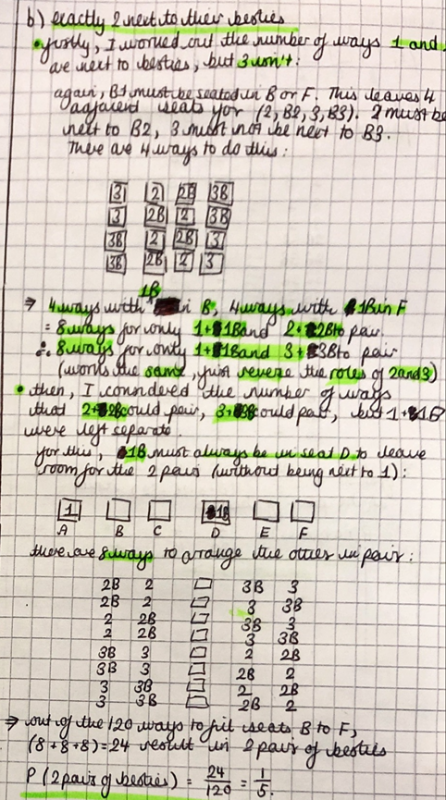 b) exactly 2 next to their besties
• firstly, I worked out the number of ways 1 and
are next to besties, but 3 isn't:
again, B1 must be seated in B or F. This leaves 4
adjacent seats for (2, B2, 3, B3). 2 must be
next to B2, 3 must not be next to B3.
There are 4 ways to do this:
3 2 2B 3B
3 2B 2 3B
3B 2 2B 3
3B 2B 2 3
1B
⇒ 4 ways with in B, 4 ways with 1B in F
= 8 ways for only 1+1B and 2+2B to pair
∴ 8 ways for only 1+1B and 3+3B to pair
(works the same, just reverse the roles of 2 and 3)
• then, I considered the number of ways
that 2+2B could pair, 3+3B could pair, but 1+1B
were left separate.
for this, 1B must always be in seat D to leave
room for the 2 pairs (without being next to 1):
1 1B
A B C D E F
there are 8 ways to arrange the others in pairs:
2B 2 3B 3
2B 2 3 3B
2 2B 3B 3
2 2B 3 3B
3B 3 2 2B
3B 3 2B 2
3 3B 2 2B
3 3B 2B 2
⇒ out of the 120 ways to fill seats B to F,
(8+8+8)=24 result in 2 pairs of besties
P(2 pairs of besties) = 24/120 = 1/5.